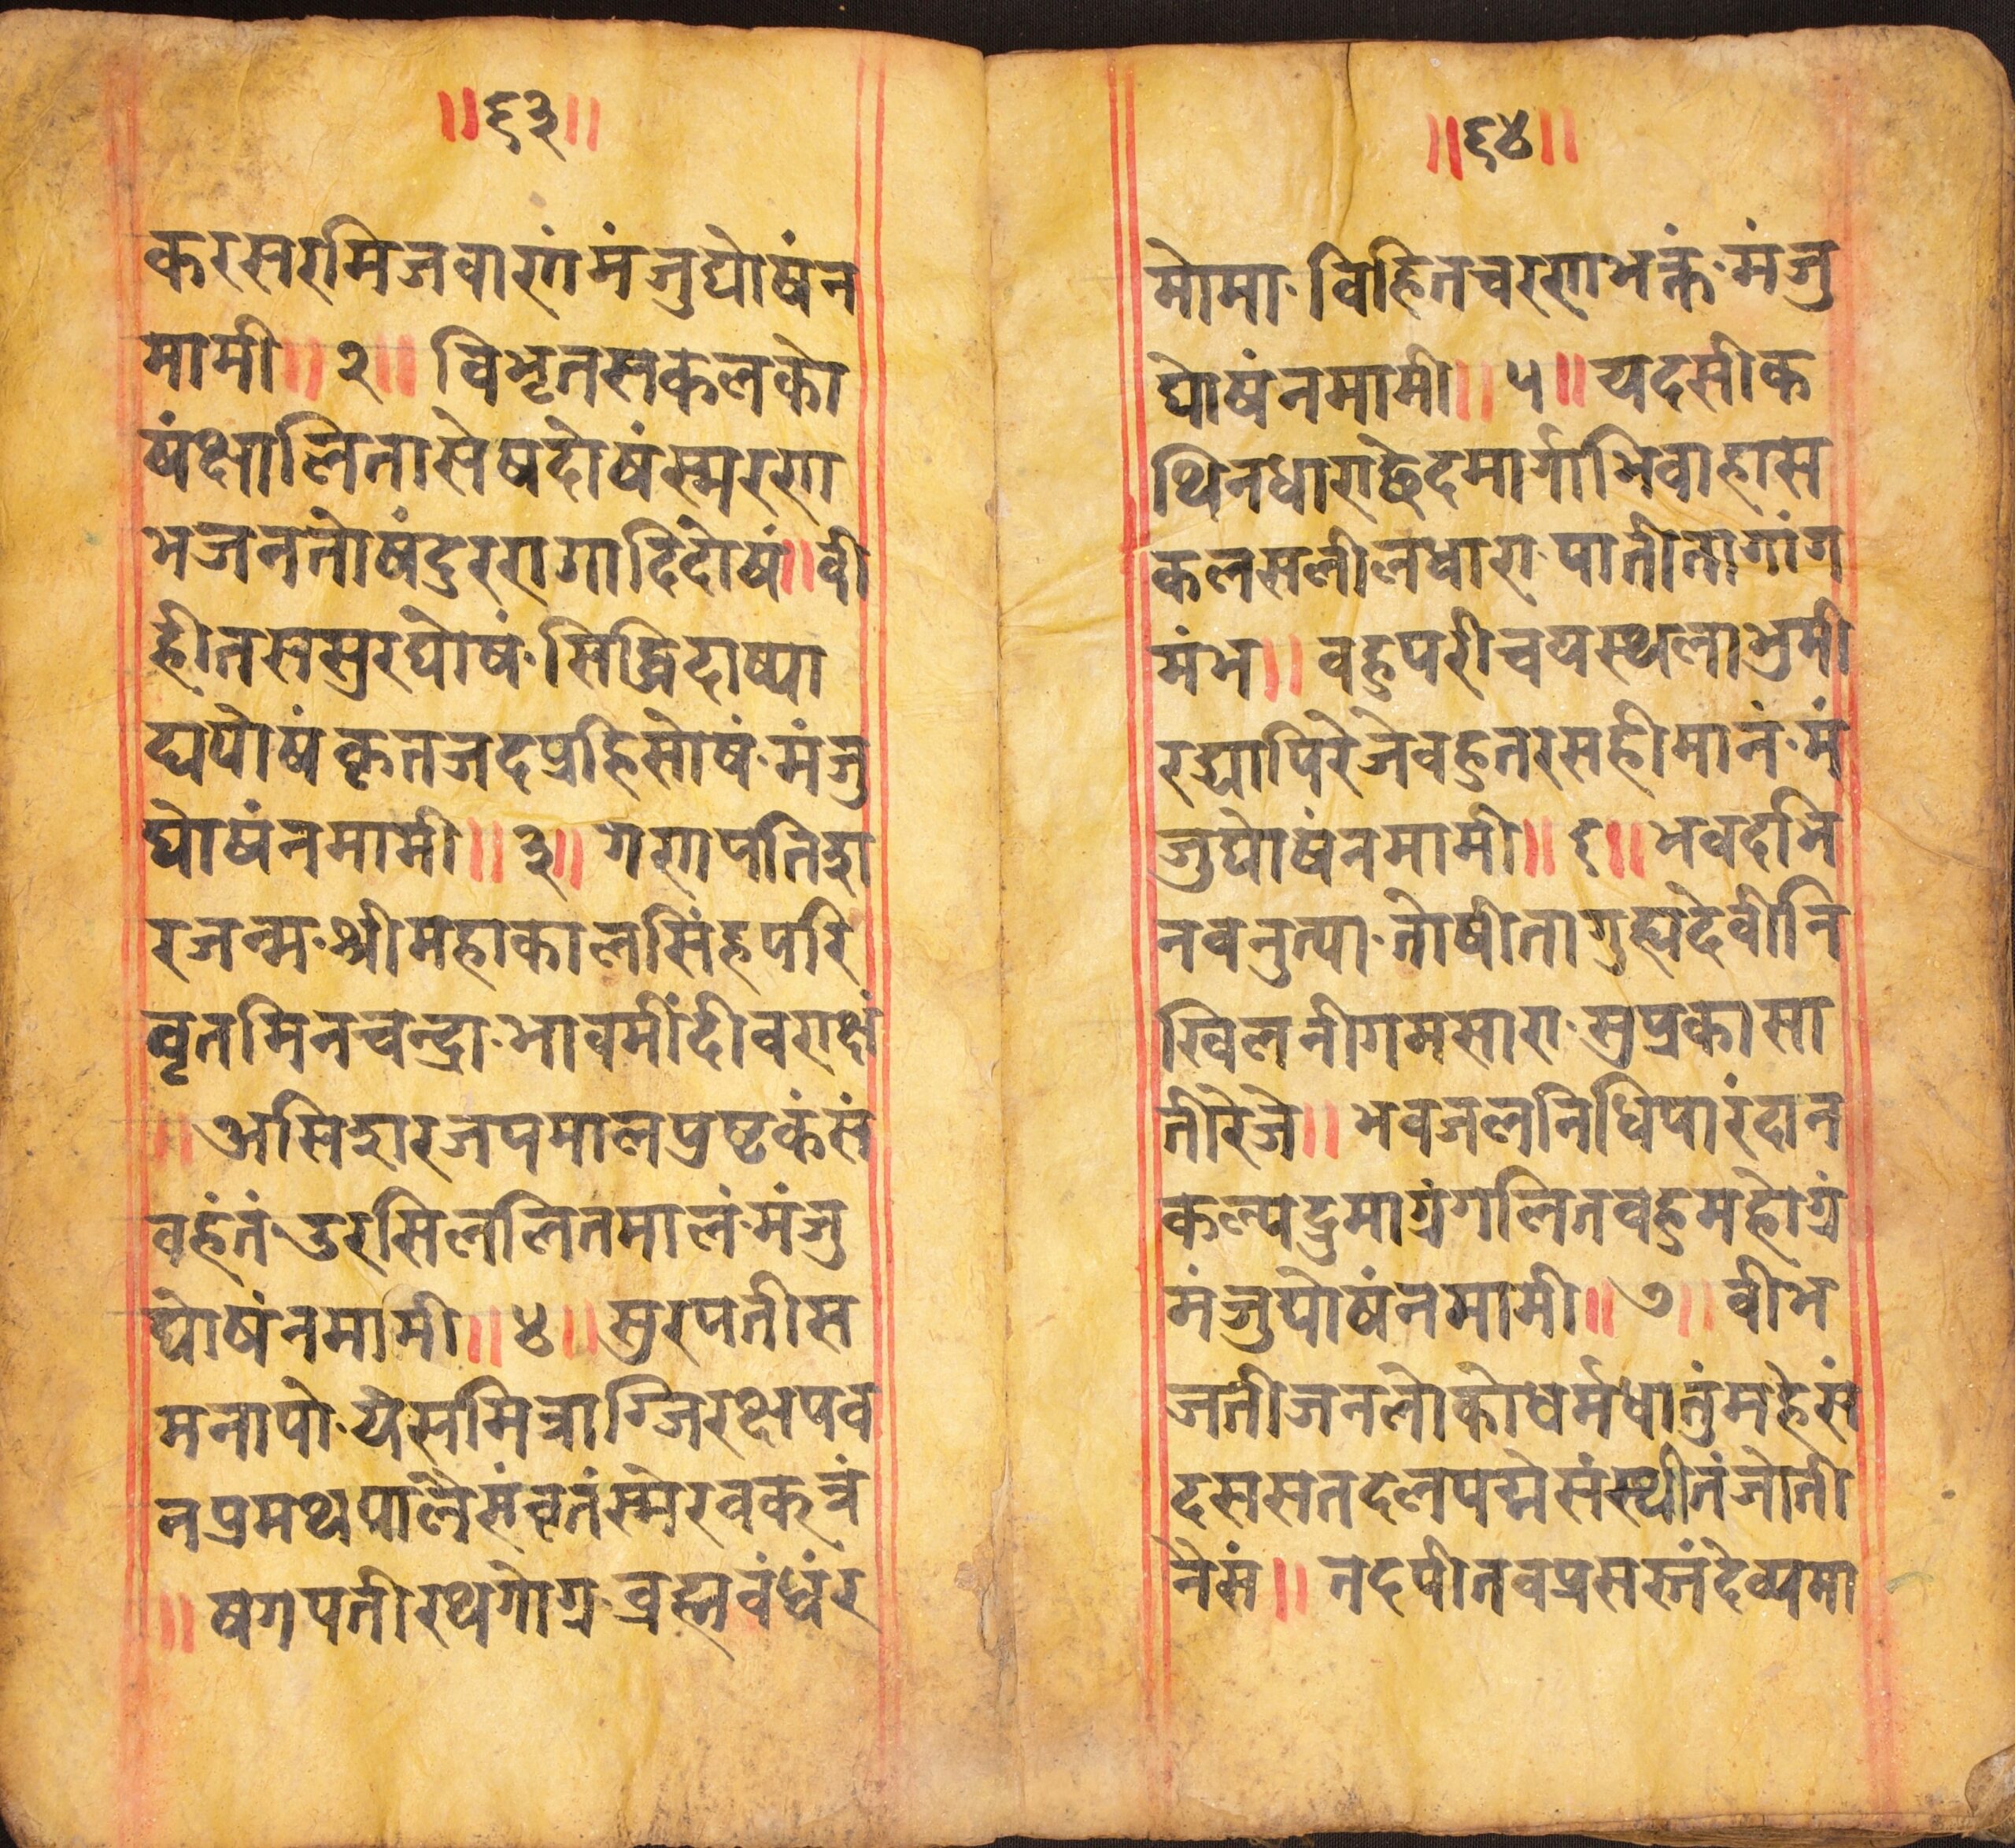 ॥६३॥
करसरमिजवारणंमंजुघोषंन
मामी॥२॥ विभृतसकलको
षंक्षालितासेषदोषंस्मरणा
भजनतोषंदुररागादिदोषं॥वी
हीतससुरघोषं·सिद्धिदाष्या
द्यपोषंकृतजदप्रहिसोषं·मंजु
घोषंनमामी॥३॥ गणपतिद्वा
रजन्म·श्रीमहाकालसिंहपरि
वृतमिनचन्द्रा·भावमींदीवराक्षं
॥ असिद्वारजपमालप्रष्टकंसं
वहंतं·उरसिललितमालं·मंजु
घोषंनमामी॥४॥सुरपतीस
मनापो·यैसमित्राग्जिरक्षपव
नप्रमथपालैसंवृतंस्मेरवक्त्रं
॥ षगपतीरथगोग्र·ब्रह्मवंध्वंर
॥६४॥
मोमा·विहितचरणभक्तं·मंजु
घोषंनमामी॥५॥यदसीक
थिनधाराछेदमार्गाभिवाहास
कलसलीलधारा·पातीतागांग
मंभ॥ वहुपरीचयस्थलाभुमी
रद्यापिरेजेवहुतरसहीमानं·मं
जुघोषंनमामी॥६॥भवदभि
नवनुत्या·तोषीतागुह्यदेवीनि
खिलनीगमसारा·सुप्रकासा
तीरेजे॥ भवजलनिधिपारंदान
कल्पद्रुमाग्रंगलितवहुमहोग्रं
मंजुघोषंनमामी॥७॥ वीभ
जतीजनलोकोधर्मधातुंमहेसं
दससतदलपद्मेसंस्थीतंजोती
नेसं॥ नदपीतवप्रसस्नंदेव्यमा